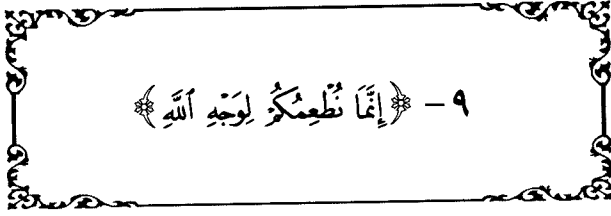 ٩ - ﴿إِنَّمَا نُطْعِمُكُمْ لِوَجْهِ ٱللَّهِ﴾